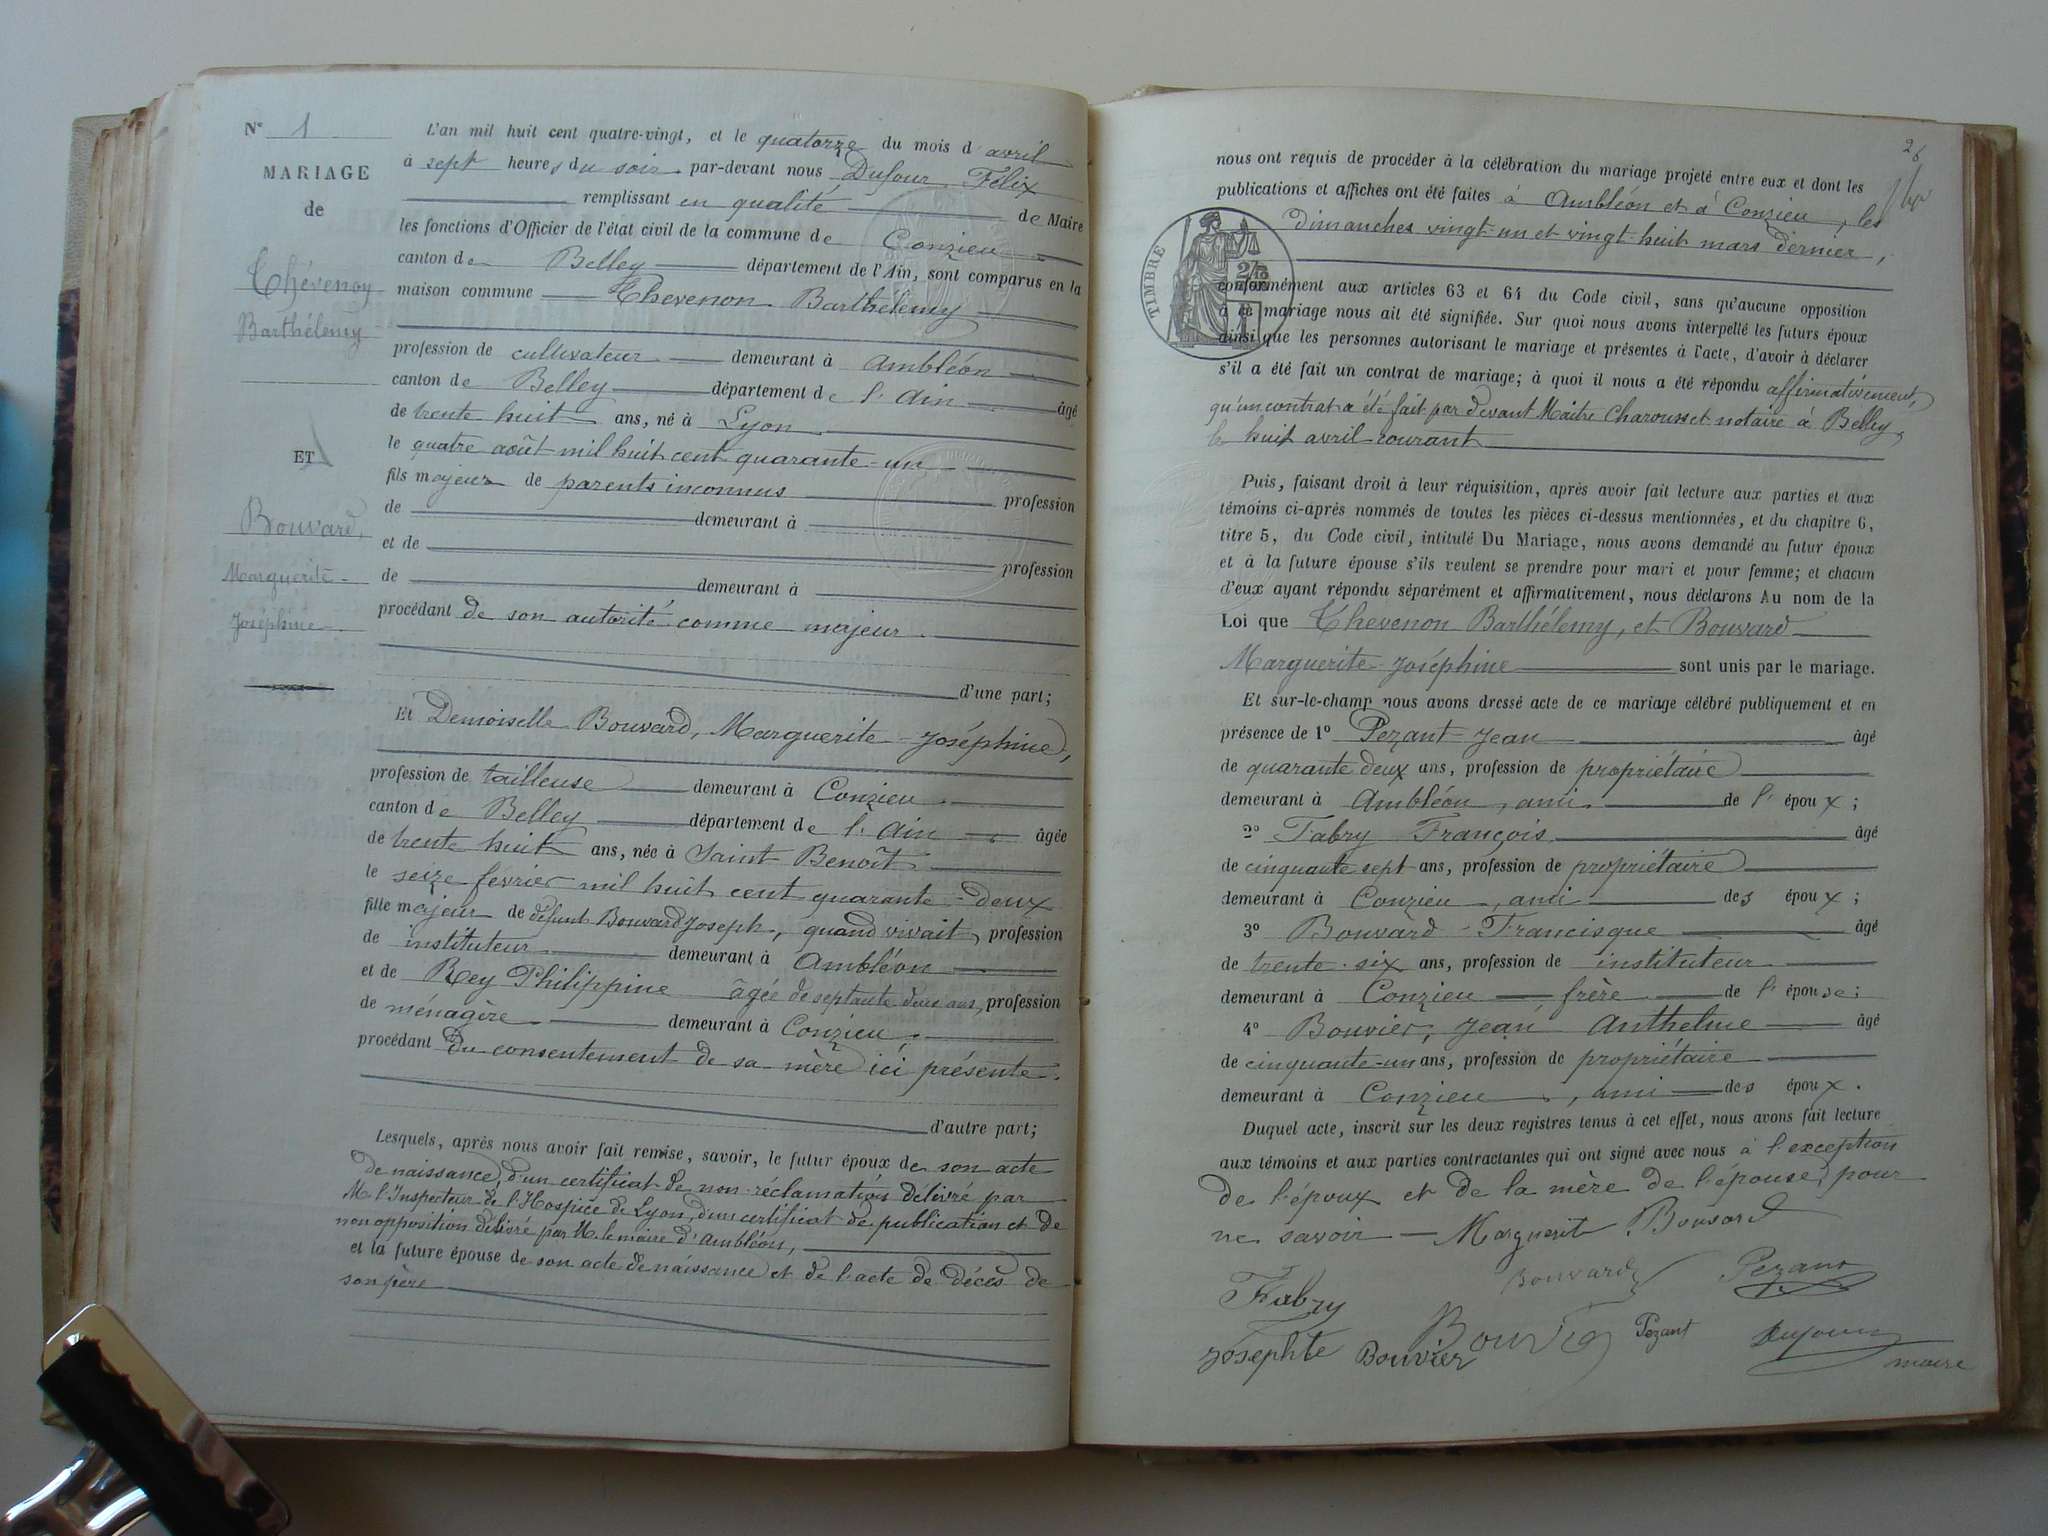 N° 1
MARIAGE
de
Thévenon
Barthélemy
ET
Bouvard,
Marguerite-
Joséphine
L'an mil huit cent quatre-vingt, et le quatorze du mois d'avril
à sept heures du soir par-devant nous Dufour Félix
remplissant en qualité de Maire
les fonctions d'Officier de l'état civil de la commune de Conzieu
canton de Belley département de l'Ain, sont comparus en la
maison commune Thevenon Barthélemy
profession de cultivateur demeurant à Ambléon
canton de Belley département de l'Ain âgé
de trente huit ans, né à Lyon
le quatre août mil huit cent quarante-un
fils majeur de parents inconnus profession
de demeurant à
et de profession
de demeurant à
procédant de son autorité comme majeur
d'une part;
Et Demoiselle Bouvard, Marguerite-Joséphine,
profession de tailleuse demeurant à Conzieu
canton de Belley département de l'Ain âgée
de trente huit ans, née à Saint Benoît
le seize fevrier mil huit cent quarante-deux
fille majeur de défunt Bouvard Joseph, quand vivait, profession
de instituteur demeurant à Ambléon
et de Rey Philippine âgée de septante deux ans, profession
de ménagère demeurant à Conzieu
procédant du consentement de sa mère ici présente.
d'autre part;
Lesquels, après nous avoir fait remise, savoir, le futur époux de son acte
de naissance, d'un certificat de non-réclamation délivré par
M. l'Inspecteur de l'Hospice de Lyon, d'un certificat de publication et de
non opposition délivré par M. le maire d'Ambléon,
et la future épouse de son acte de naissance et de l'acte de décès de
son père
26
nous ont requis de procéder à la célébration du mariage projeté entre eux et dont les
publications et affiches ont été faites à Ambléon et à Conzieu, les
dimanches vingt-un et vingt-huit mars dernier,
TIMBRE
conformément aux articles 63 et 64 du Code civil, sans qu'aucune opposition
à ce mariage nous ait été signifiée. Sur quoi nous avons interpellé les futurs époux
ainsi que les personnes autorisant le mariage et présentes à l'acte, d'avoir à déclarer
s'il a été fait un contrat de mariage; à quoi il nous a été répondu affirmativement,
qu'un contrat a été fait par devant Maître Charousset notaire à Belley,
le huit avril courant
Puis, faisant droit à leur réquisition, après avoir fait lecture aux parties et aux
témoins ci-après nommés de toutes les pièces ci-dessus mentionnées, et du chapitre 6,
titre 5, du Code civil, intitulé Du Mariage, nous avons demandé au futur époux
et à la future épouse s'ils veulent se prendre pour mari et pour femme; et chacun
d'eux ayant répondu séparément et affirmativement, nous déclarons Au nom de la
Loi que Thevenon Barthélemy, et Bouvard
Marguerite-Joséphine sont unis par le mariage.
Et sur-le-champ nous avons dressé acte de ce mariage célébré publiquement et en
présence de 1° Pezant Jean âgé
de quarante deux ans, profession de propriétaire
demeurant à Ambléon, ami de l'époux;
2° Fabry François âgé
de cinquante sept ans, profession de propriétaire
demeurant à Conzieu, ami des époux;
3° Bouvard-Francisque âgé
de trente-six ans, profession de instituteur
demeurant à Conzieu frère de l'épouse;
4° Bouvier, Jean Anthelme âgé
de cinquante-un ans, profession de propriétaire
demeurant à Conzieu, ami des époux.
Duquel acte, inscrit sur les deux registres tenus à cet effet, nous avons fait lecture
aux témoins et aux parties contractantes qui ont signé avec nous à l'exception
de l'époux et de la mère de l'épouse, pour
ne savoir — Marguerit Bouvard
Fabry Bouvard Pezant
Josephte Bouvier Pezant Dufour
maire